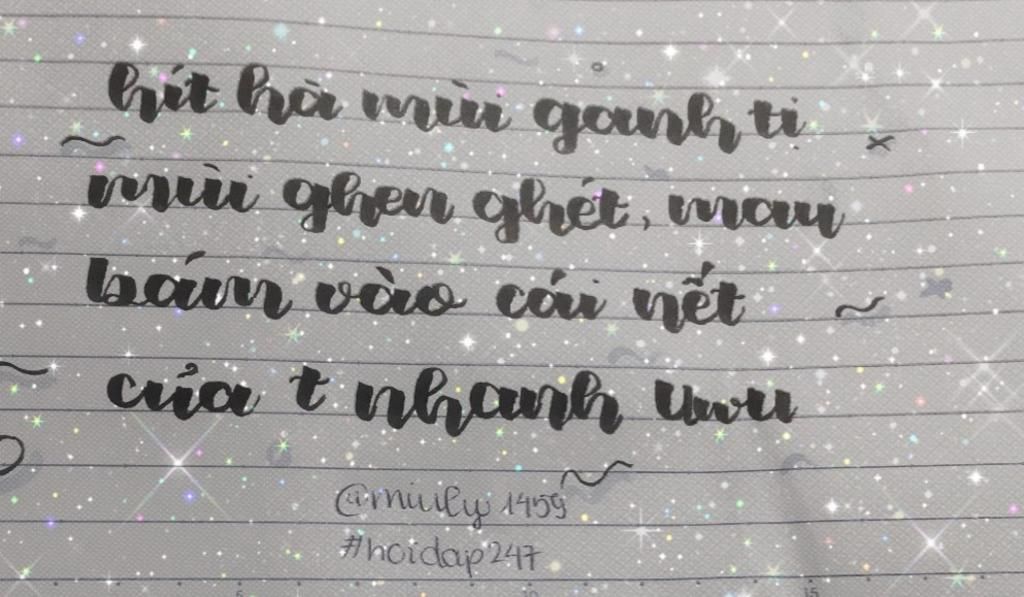 hít hà mùi ganh tị
mùi ghen ghét, mau
bám vào cái nết
của t nhanh uwu
@miuily1459
#hoidap247
5 10 15